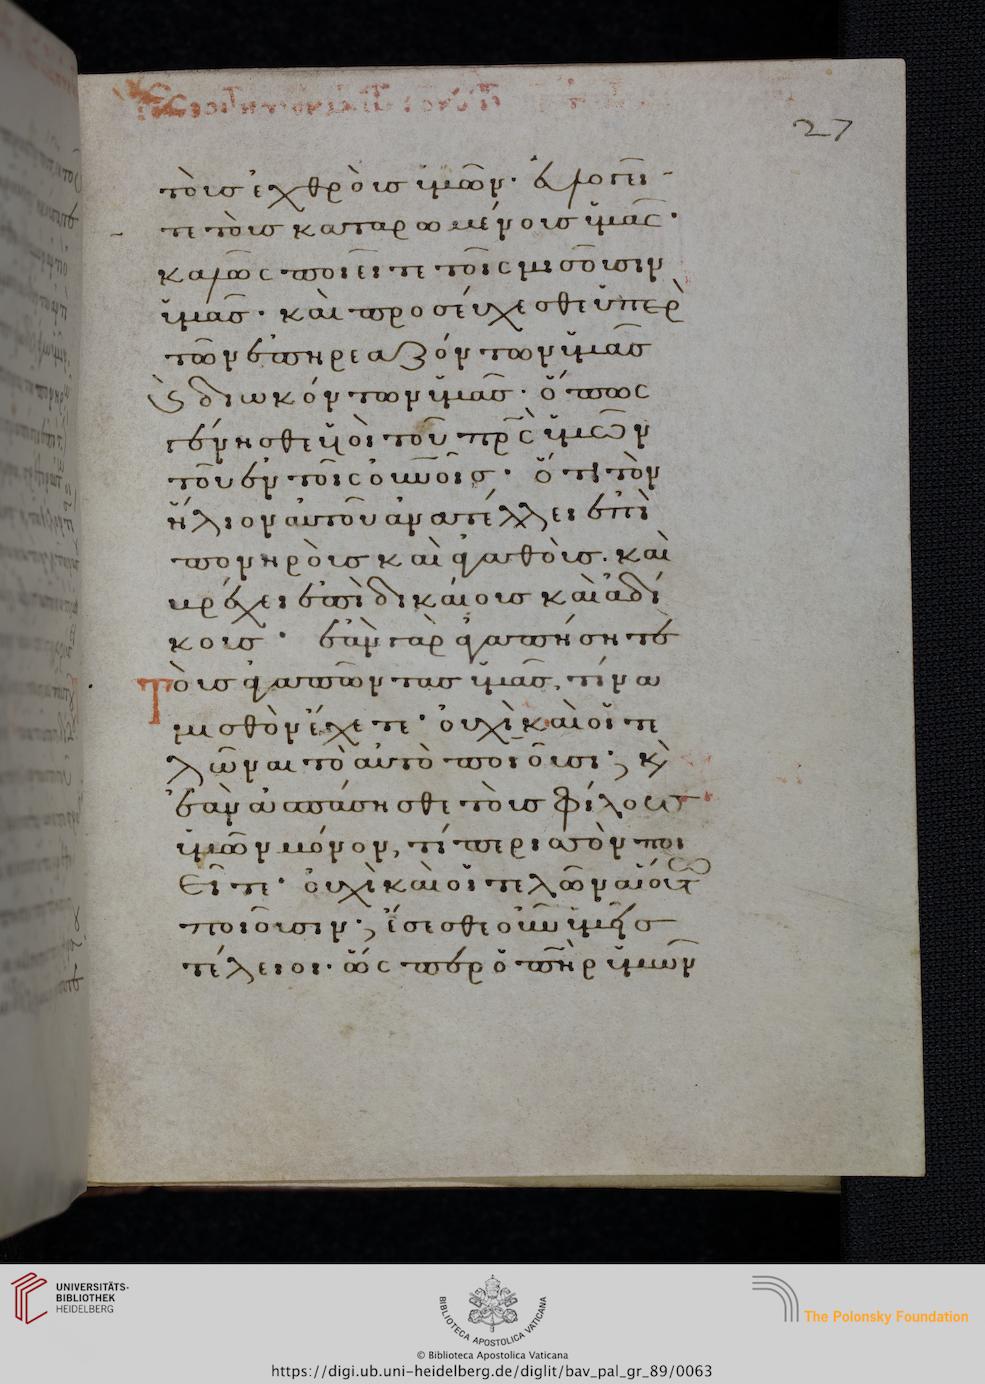 27
τοῖς ἐχθροῖς ὑμῶν· εὐλογεῖ-
τε τοὺς καταρωμένους ὑμᾶς·
καλῶς ποιεῖτε τοῖς μισοῦσιν
ὑμᾶς· καὶ προσεύχεσθε ὑπὲρ
τῶν ἐπηρεαζόντων ὑμᾶς
καὶ διωκόντων ὑμᾶς· ὅπως
γένησθε υἱοὶ τοῦ πρς ὑμῶν
τοῦ ἐν τοῖς οὐνοῖς· ὅτι τὸν
ἥλιον αὐτοῦ ἀνατέλλει ἐπὶ
πονηροὺς καὶ ἀγαθοὺς· καὶ
βρέχει ἐπὶ δικαίους καὶ ἀδί
κους· ἐὰν γὰρ ἀγαπήσητε
Τοὺς ἀγαπῶντας ὑμᾶς, τίνα
μισθὸν ἔχετε· οὐχὶ καὶ οἱ τε
λῶναι τὸ αὐτὸ ποιοῦσι; κὶ
ἐὰν ἀσπάσησθε τοὺς φίλους
ὑμῶν μόνον, τί περισσὸν ποι
εῖτε· οὐχὶ καὶ οἱ τελῶναι οὕτω
ποιοῦσιν; ἔσεσθε οὖν ὑμεῖς
τέλειοι· ὥσπερ ὁ πὴρ ὑμῶν
UNIVERSITÄTS-
BIBLIOTHEK
HEIDELBERG
BIBLIOTECA APOSTOLICA VATICANA
The Polonsky Foundation
© Biblioteca Apostolica Vaticana
https://digi.ub.uni-heidelberg.de/diglit/bav_pal_gr_89/0063